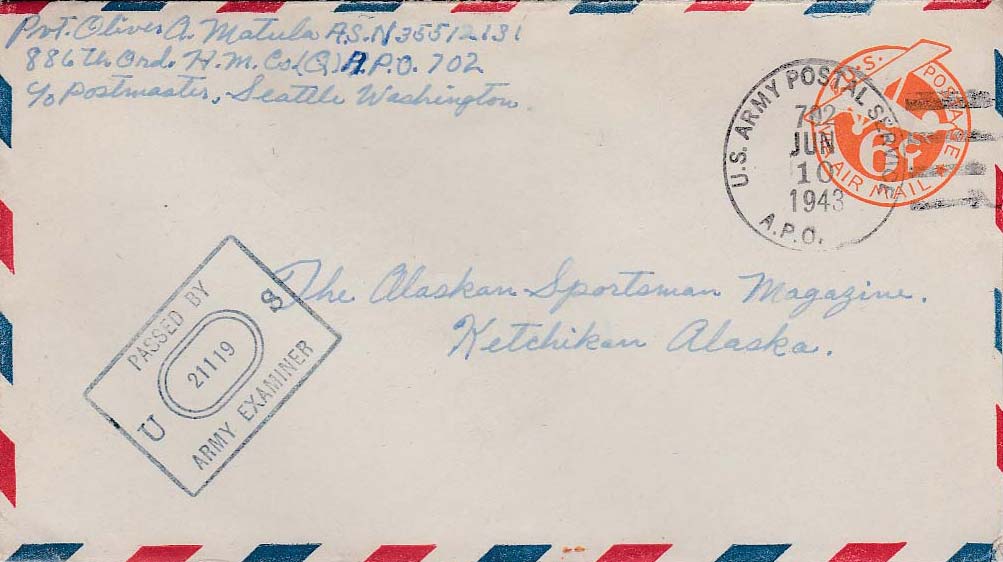 Pvt. Oliver A. Matula A.S.N 35512131
886th Ord. H. M. Co. (Q) A.P.O. 702
c/o Postmaster, Seattle Washington.
U.S. ARMY POSTAL SERVICE
702
JUN
10
1943
A.P.O.
U.S. POSTAGE
6¢
VIA AIR MAIL
The Alaskan Sportsman Magazine.
Ketchikan Alaska.
PASSED BY
U 21119 S
ARMY EXAMINER